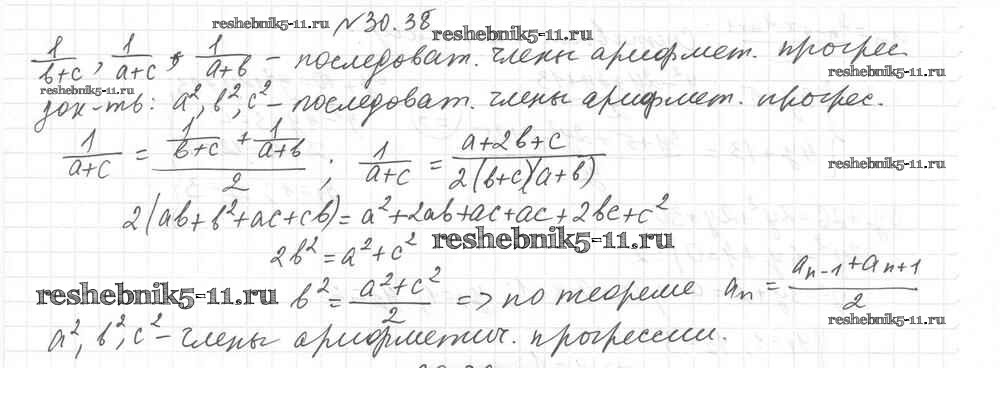 reshebnik5-11.ru №30.38 reshebnik5-11.ru
1/(b+c), 1/(a+c), 1/(a+b) - последоват. члены арифмет. прогрес
reshebnik5-11.ru reshebnik5-11.ru
док-ть: a², b², c² - последоват. члены арифмет. прогрес.
1/(a+c) = (1/(b+c) + 1/(a+b))/2 ; 1/(a+c) = (a+2b+c)/(2(b+c)(a+b)) reshebnik5-11.ru
2(ab+b²+ac+cb)=a²+2ab+ac+ac+2bc+c²
2b²=a²+c² reshebnik5-11.ru
reshebnik5-11.ru b²=(a²+c²)/2 => по теореме aₙ=(aₙ₋₁+aₙ₊₁)/2
reshebnik5-11.ru
a², b², c² - члены арифметич. прогрессии.